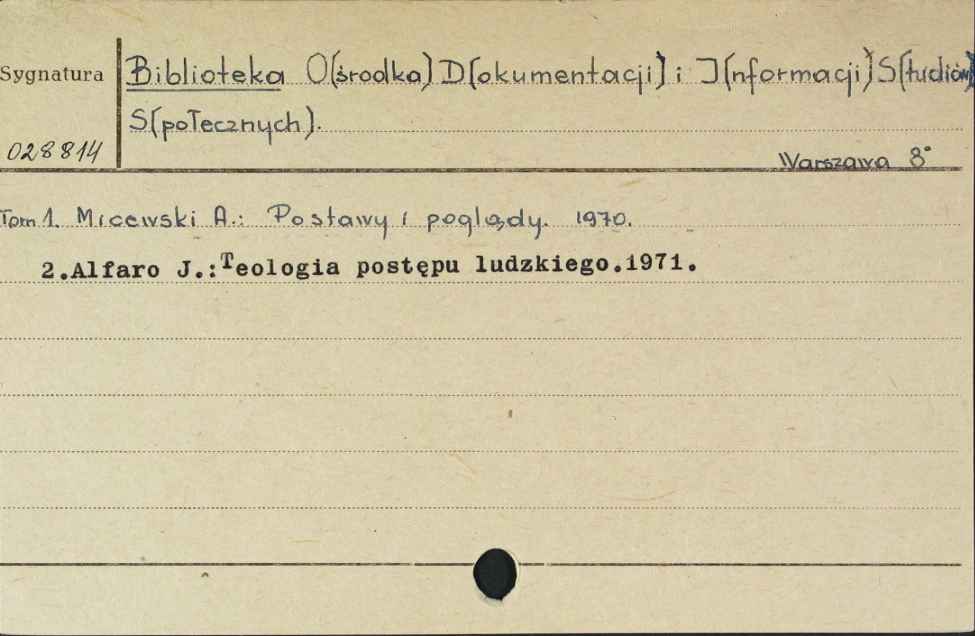 Sygnatura
Biblioteka O(środka) D[okumentacji] i I[nformacji] S[tudiów]
S[połecznych].
028814
Warszawa 8°
Tom 1. Micewski A.: Postawy i poglądy. 1970.
2.Alfaro J.:Teologia postępu ludzkiego.1971.